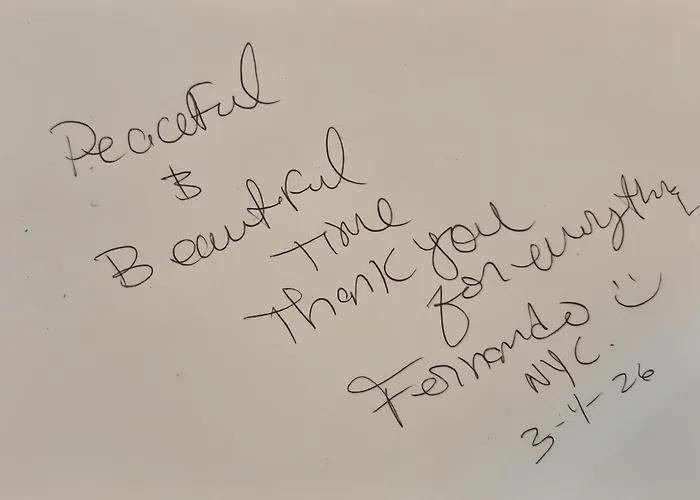 Peaceful
&
Beautiful
Time
Thank you
for everything
Fernando :)
NYC.
3-4-26